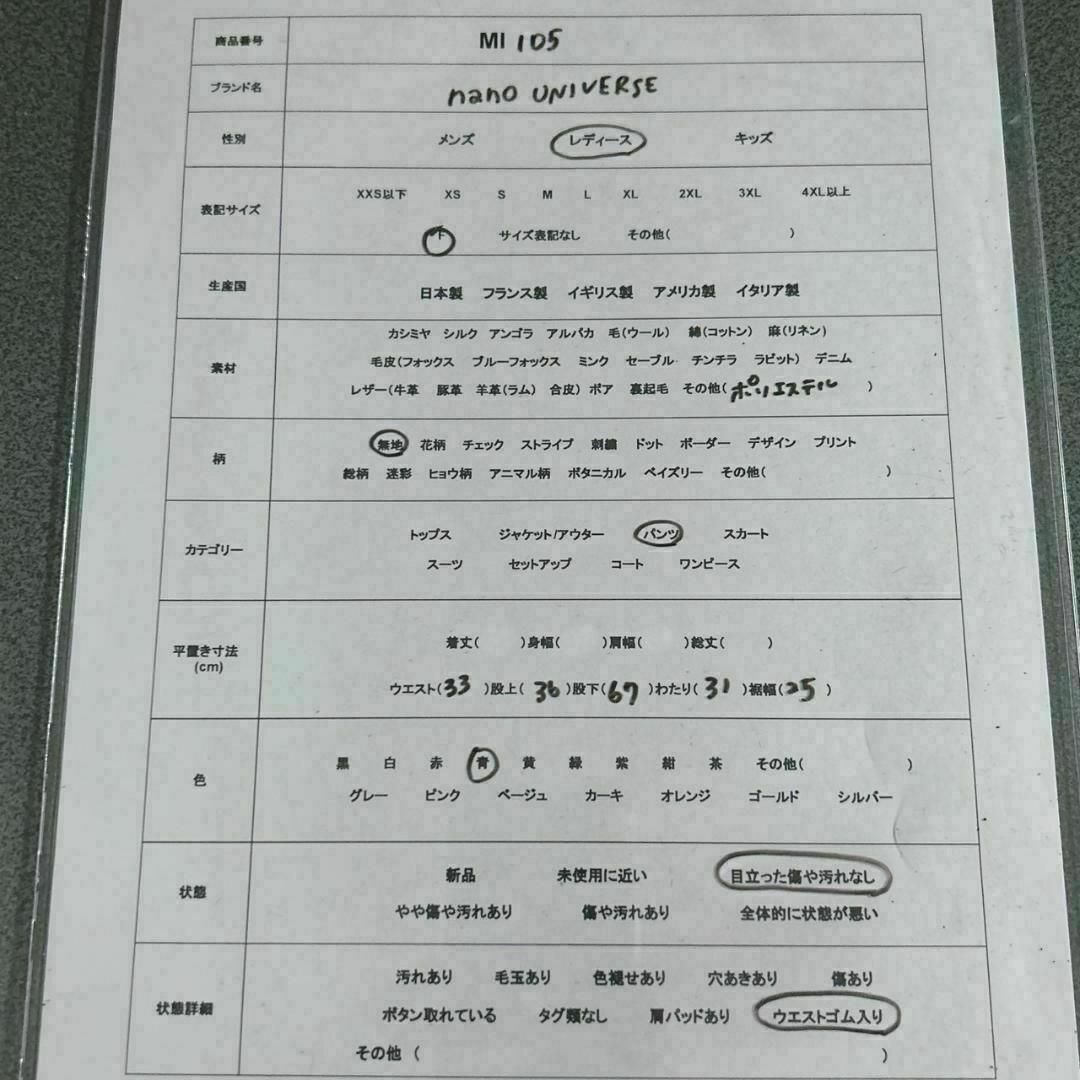 商品番号 MI 105
ブランド名 nano UNIVERSE
性別 メンズ レディース キッズ
表記サイズ XXS以下 XS S M L XL 2XL 3XL 4XL以上
サイズ表記なし その他( )
生産国 日本製 フランス製 イギリス製 アメリカ製 イタリア製
素材 カシミヤ シルク アンゴラ アルパカ 毛(ウール) 綿(コットン) 麻(リネン)
毛皮(フォックス ブルーフォックス ミンク セーブル チンチラ ラビット) デニム
レザー(牛革 豚革 羊革(ラム) 合皮) ボア 裏起毛 その他(ポリエステル )
柄 無地 花柄 チェック ストライプ 刺繍 ドット ボーダー デザイン プリント
総柄 迷彩 ヒョウ柄 アニマル柄 ボタニカル ペイズリー その他( )
カテゴリー トップス ジャケット/アウター パンツ スカート
スーツ セットアップ コート ワンピース
平置き寸法
(cm)
着丈( )身幅( )肩幅( )総丈( )
ウエスト(33 )股上( 36 )股下(67 )わたり( 31 )裾幅(25 )
色 黒 白 赤 青 黄 緑 紫 紺 茶 その他( )
グレー ピンク ベージュ カーキ オレンジ ゴールド シルバー
状態 新品 未使用に近い 目立った傷や汚れなし
やや傷や汚れあり 傷や汚れあり 全体的に状態が悪い
状態詳細 汚れあり 毛玉あり 色褪せあり 穴あきあり 傷あり
ボタン取れている タグ類なし 肩パッドあり ウエストゴム入り
その他 ( )